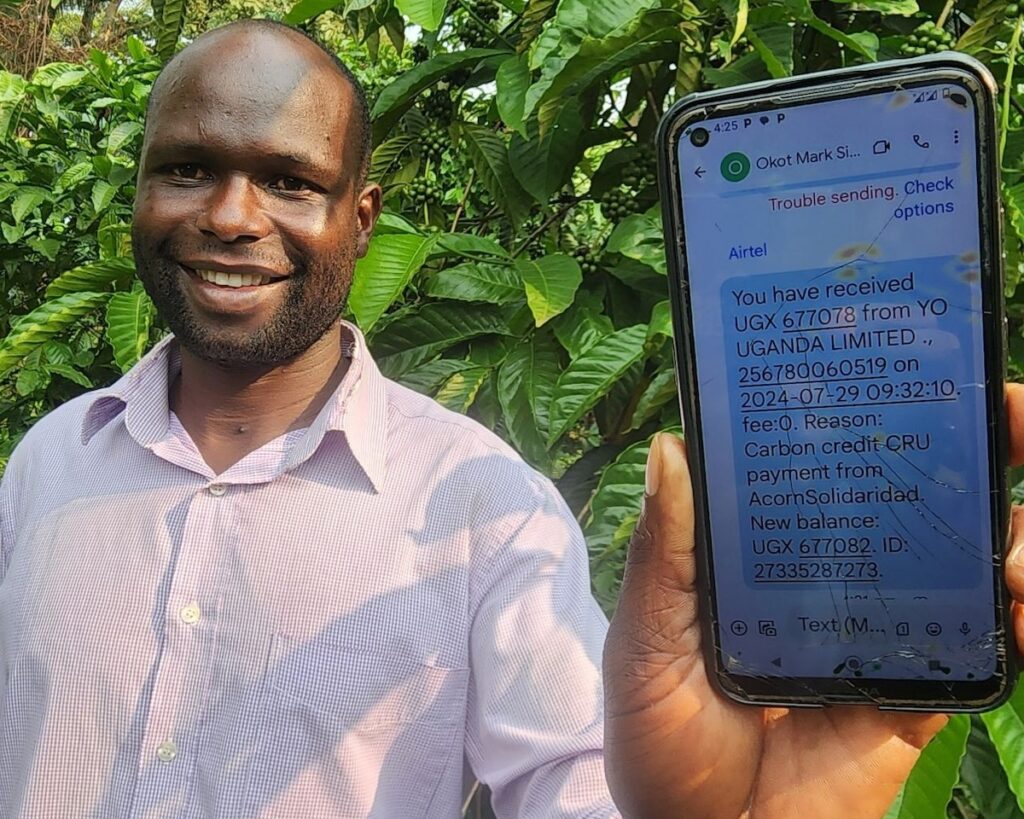 4:25 P P
O Okot Mark Si...
Trouble sending. Check
options
Airtel
You have received
UGX 677078 from YO
UGANDA LIMITED .,
256780060519 on
2024-07-29 09:32:10.
fee:0. Reason:
Carbon credit CRU
payment from
AcornSolidaridad.
New balance:
UGX 677082. ID:
27335287273.
Text (M...